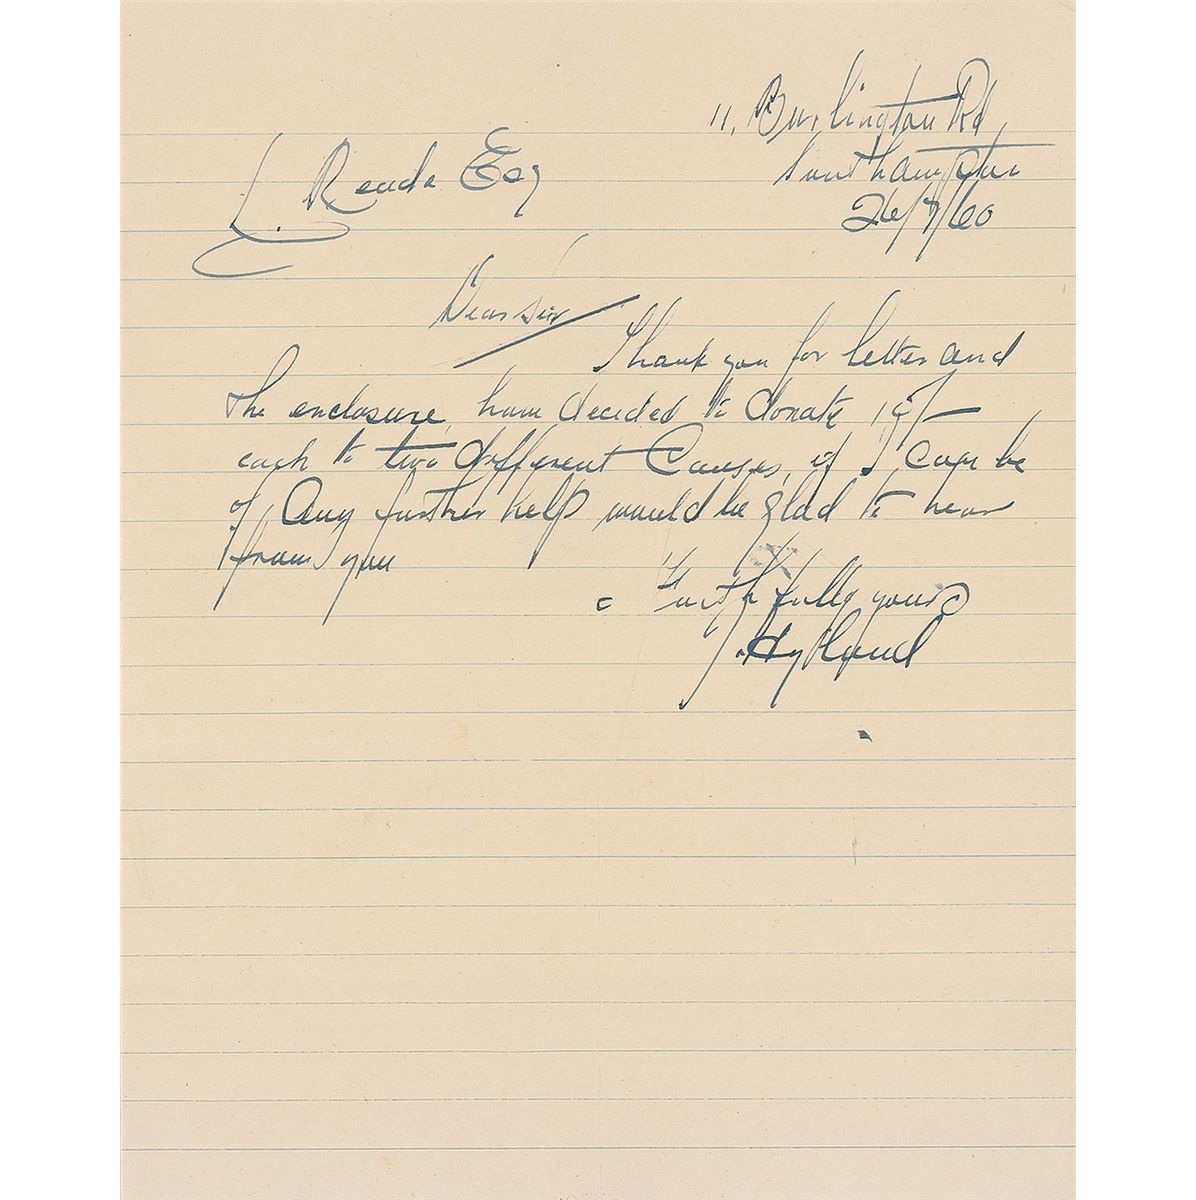 11, Burlington Rd
Southampton
26/7/60
L. Reade Esq
Dear Sir
Thank you for letter and
the enclosure, have decided to donate
each to two different Causes, if I can be
of Any further help would be glad to hear
from you
Faithfully yours